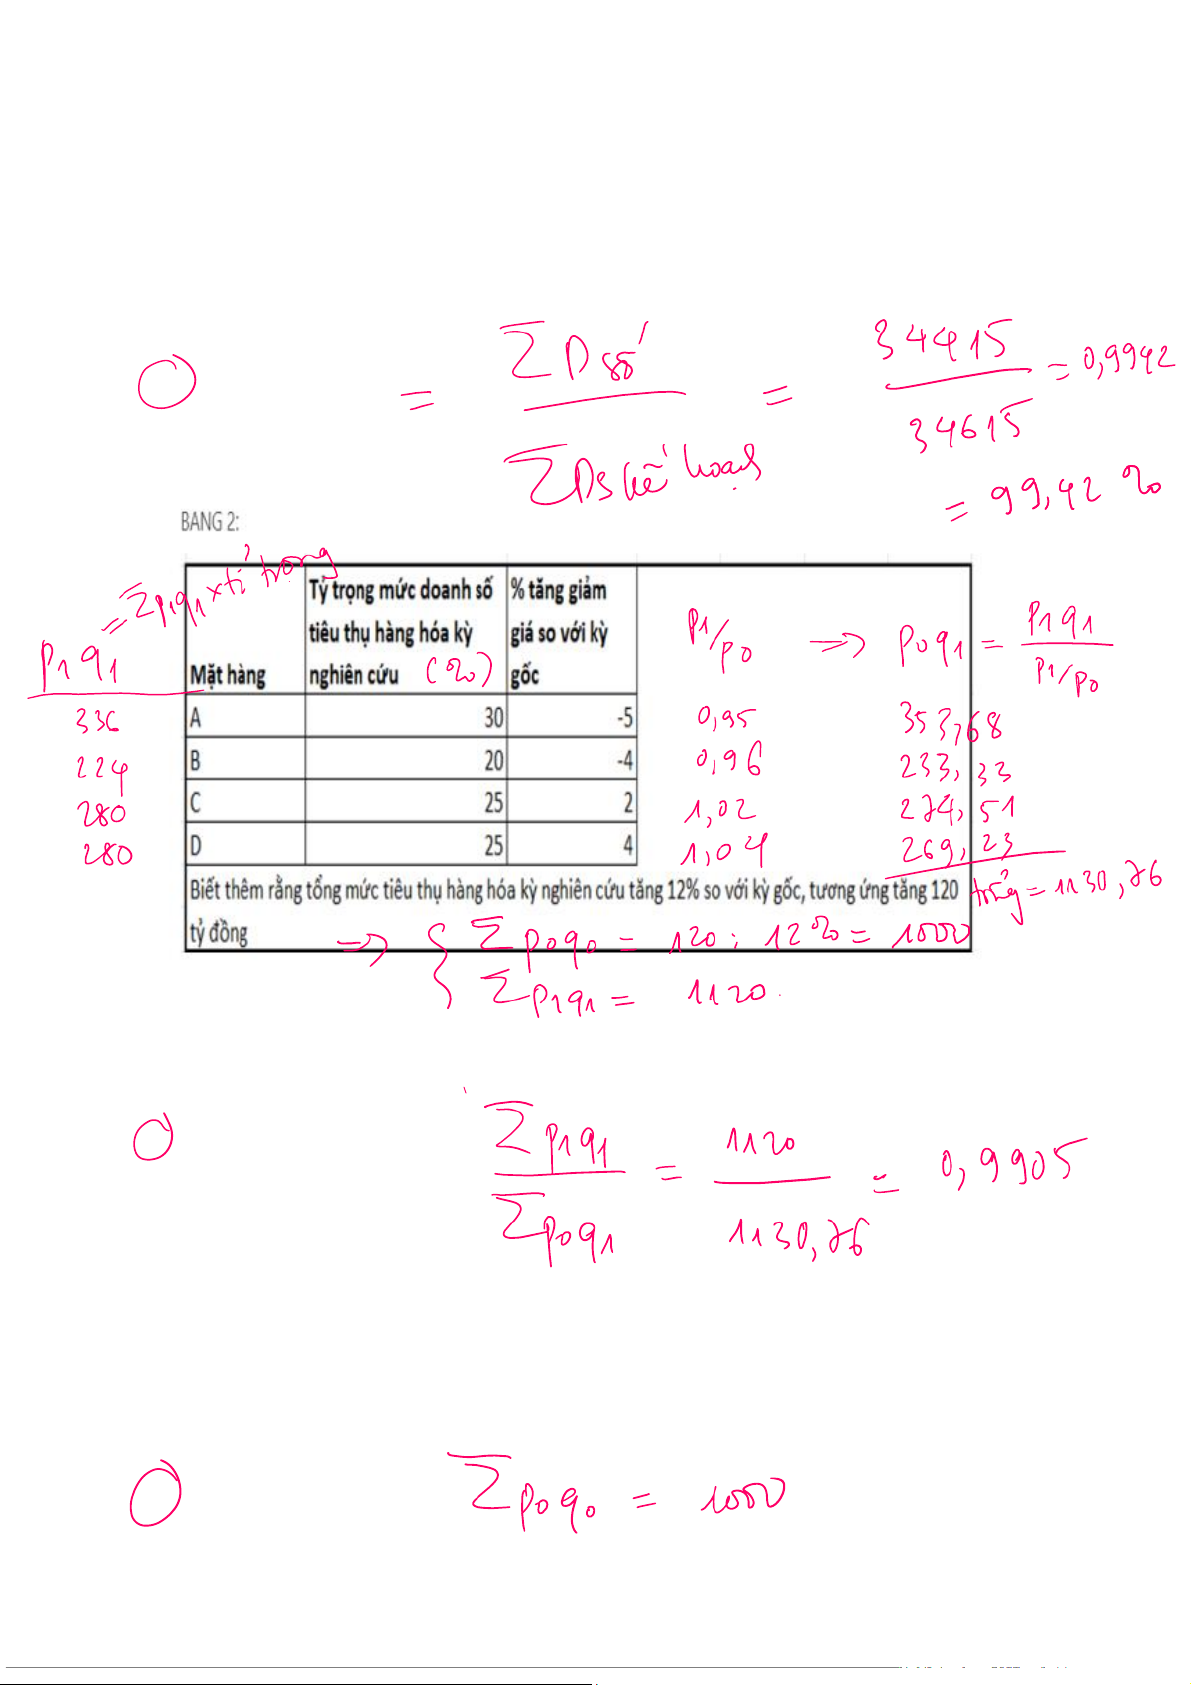 ΣDsố / ΣDS kế hoạch = 34415 / 34615 = 0,9942
= 99,42 %
BANG 2:
p1q1 = Σp1q1 x tỉ trọng
Mặt hàng | Tỷ trọng mức doanh số tiêu thụ hàng hóa kỳ nghiên cứu (%) | % tăng giảm giá so với kỳ gốc | p1/p0 => p0q1 = p1q1 / p1/p0
336 | A | 30 | -5 | 0,95 | 353,68
224 | B | 20 | -4 | 0,96 | 233,33
280 | C | 25 | 2 | 1,02 | 274,51
280 | D | 25 | 4 | 1,04 | 269,23
Biết thêm rằng tổng mức tiêu thụ hàng hóa kỳ nghiên cứu tăng 12% so với kỳ gốc, tương ứng tăng 120
tổng = 1130,76
tỷ đồng => { Σp0q0 = 120 : 12% = 1000
Σp1q1 = 1120.
Σp1q1 / Σp0q1 = 1120 / 1130,76 = 0,9905
Σp0q0 = 1000